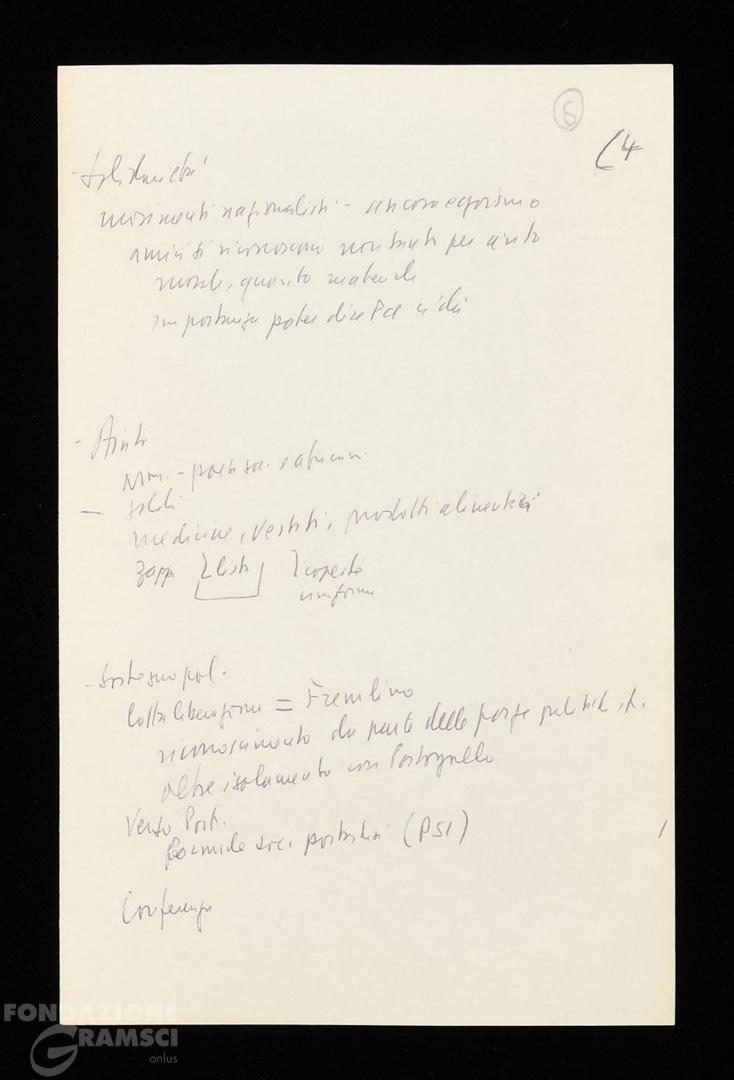 8
(4
- Solidarietà
movimenti nazionalisti - ancora egoismo
amici si riconoscono non tanto per aiuto
morale, quanto materiale
importanza poter dire Pci
- Aiuti
- paesi soc. e africani
- soldi
medicine, vestiti, prodotti alimentari
zapp
coperte
uniformi
- Sostegno pol.
lotta liberazione = Frelimo
riconoscimento da parte delle forze politich. it.
oltre isolamento con Portogallo
Verso Port.
formale soc. portoghesi (PSI)
Conferenza
FONDAZIONE
GRAMSCI
onlus